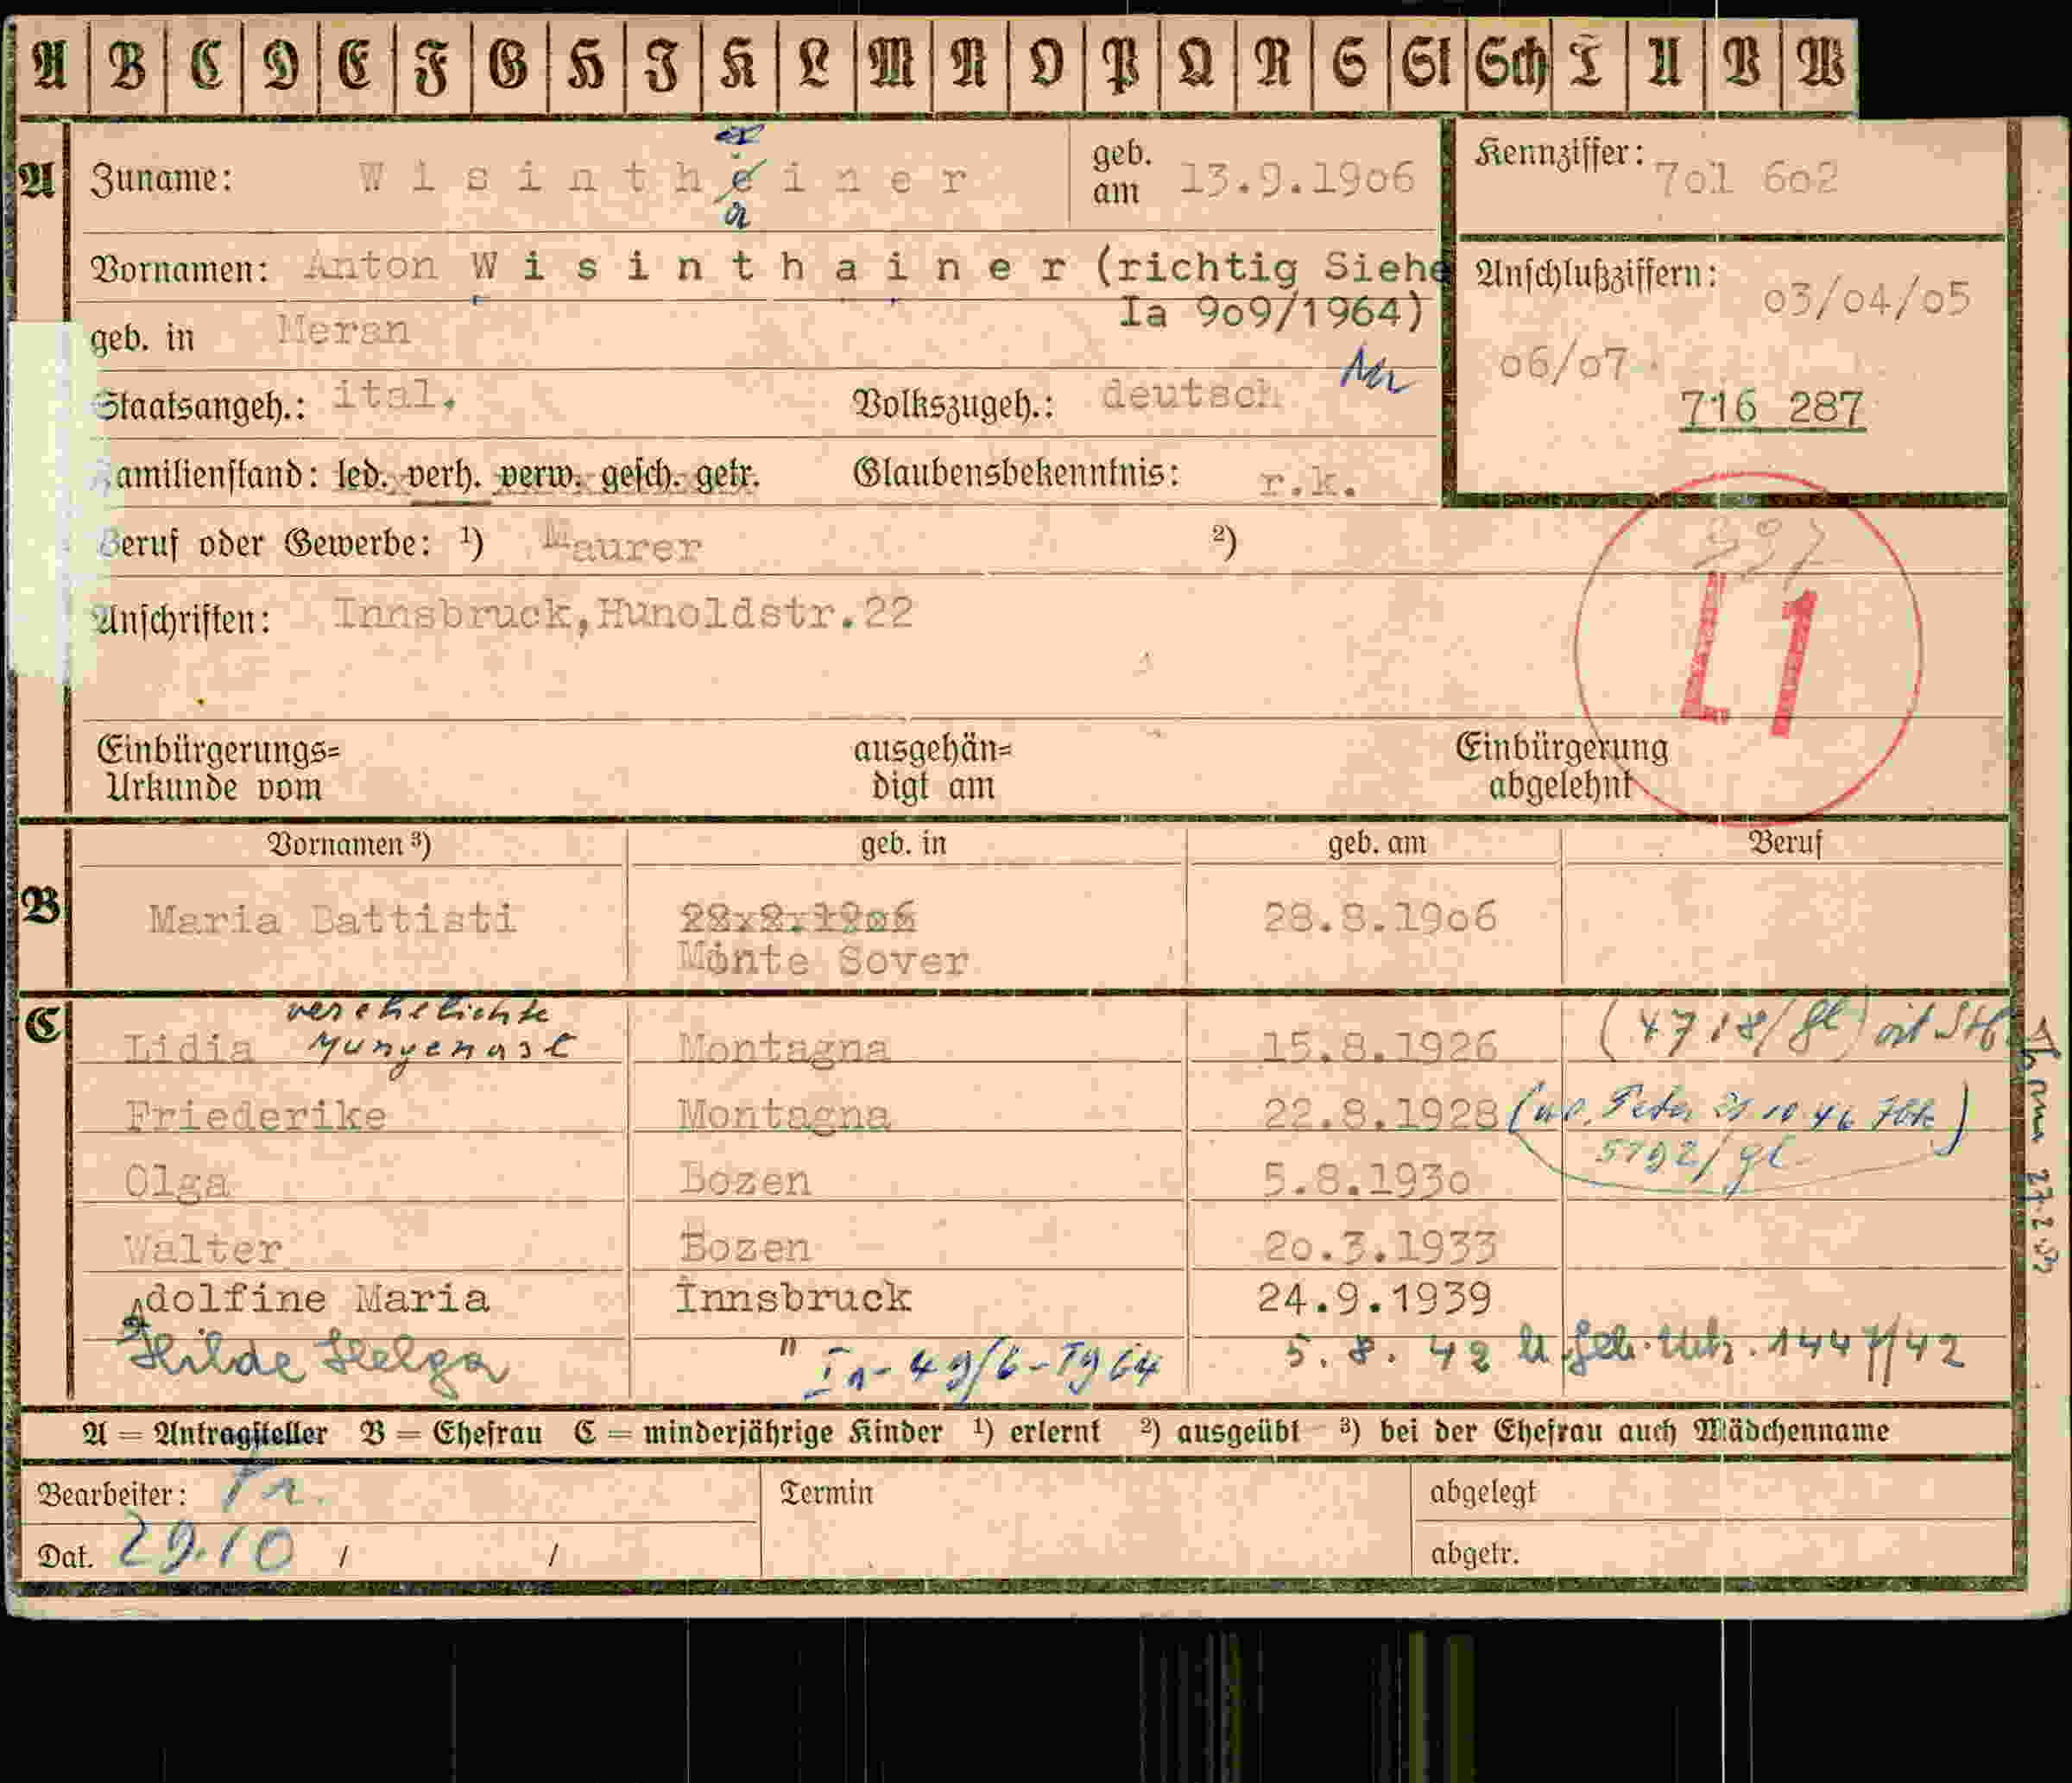 A B C D E F G H J K L M N O P Q R S St Sch T U V W
A Zuname: Wisintheiner geb. am 13.9.1906 Kennziffer: 701 602
a
Vornamen: Anton Wisinthainer (richtig Siehe
Ia 909/1964)
Anschlußziffern: 03/04/05
geb. in Meran
06/07
716 287
Staatsangeh.: ital. Volkszugeh.: deutsch
Familienstand: led. verh. verw. gesch. getr. Glaubensbekenntnis: r.k.
Beruf oder Gewerbe: ¹) Maurer ²)
397
L1
Anschriften: Innsbruck,Hunoldstr.22
Einbürgerungs= ausgehän= Einbürgerung
Urkunde vom digt am abgelehnt
Vornamen ³) geb. in geb. am Beruf
B Maria Battisti 28.8.1906 28.8.1906
Monte Sover
C verehelichte
Lidia Jungenast Montagna 15.8.1926 (4718/gl)
Friederike Montagna 22.8.1928 (
5792/gl.
Olga Bozen 5.8.1930
Walter Bozen 20.3.1933
Adolfine Maria Innsbruck 24.9.1939
Hilde Helga " Ia-49/6-1964 5.8.42 1447/42
A = Antragsteller B = Ehefrau C = minderjährige Kinder ¹) erlernt ²) ausgeübt ³) bei der Ehefrau auch Mädchenname
Bearbeiter: Termin abgelegt
Dat. 29.10 / / abgetr.